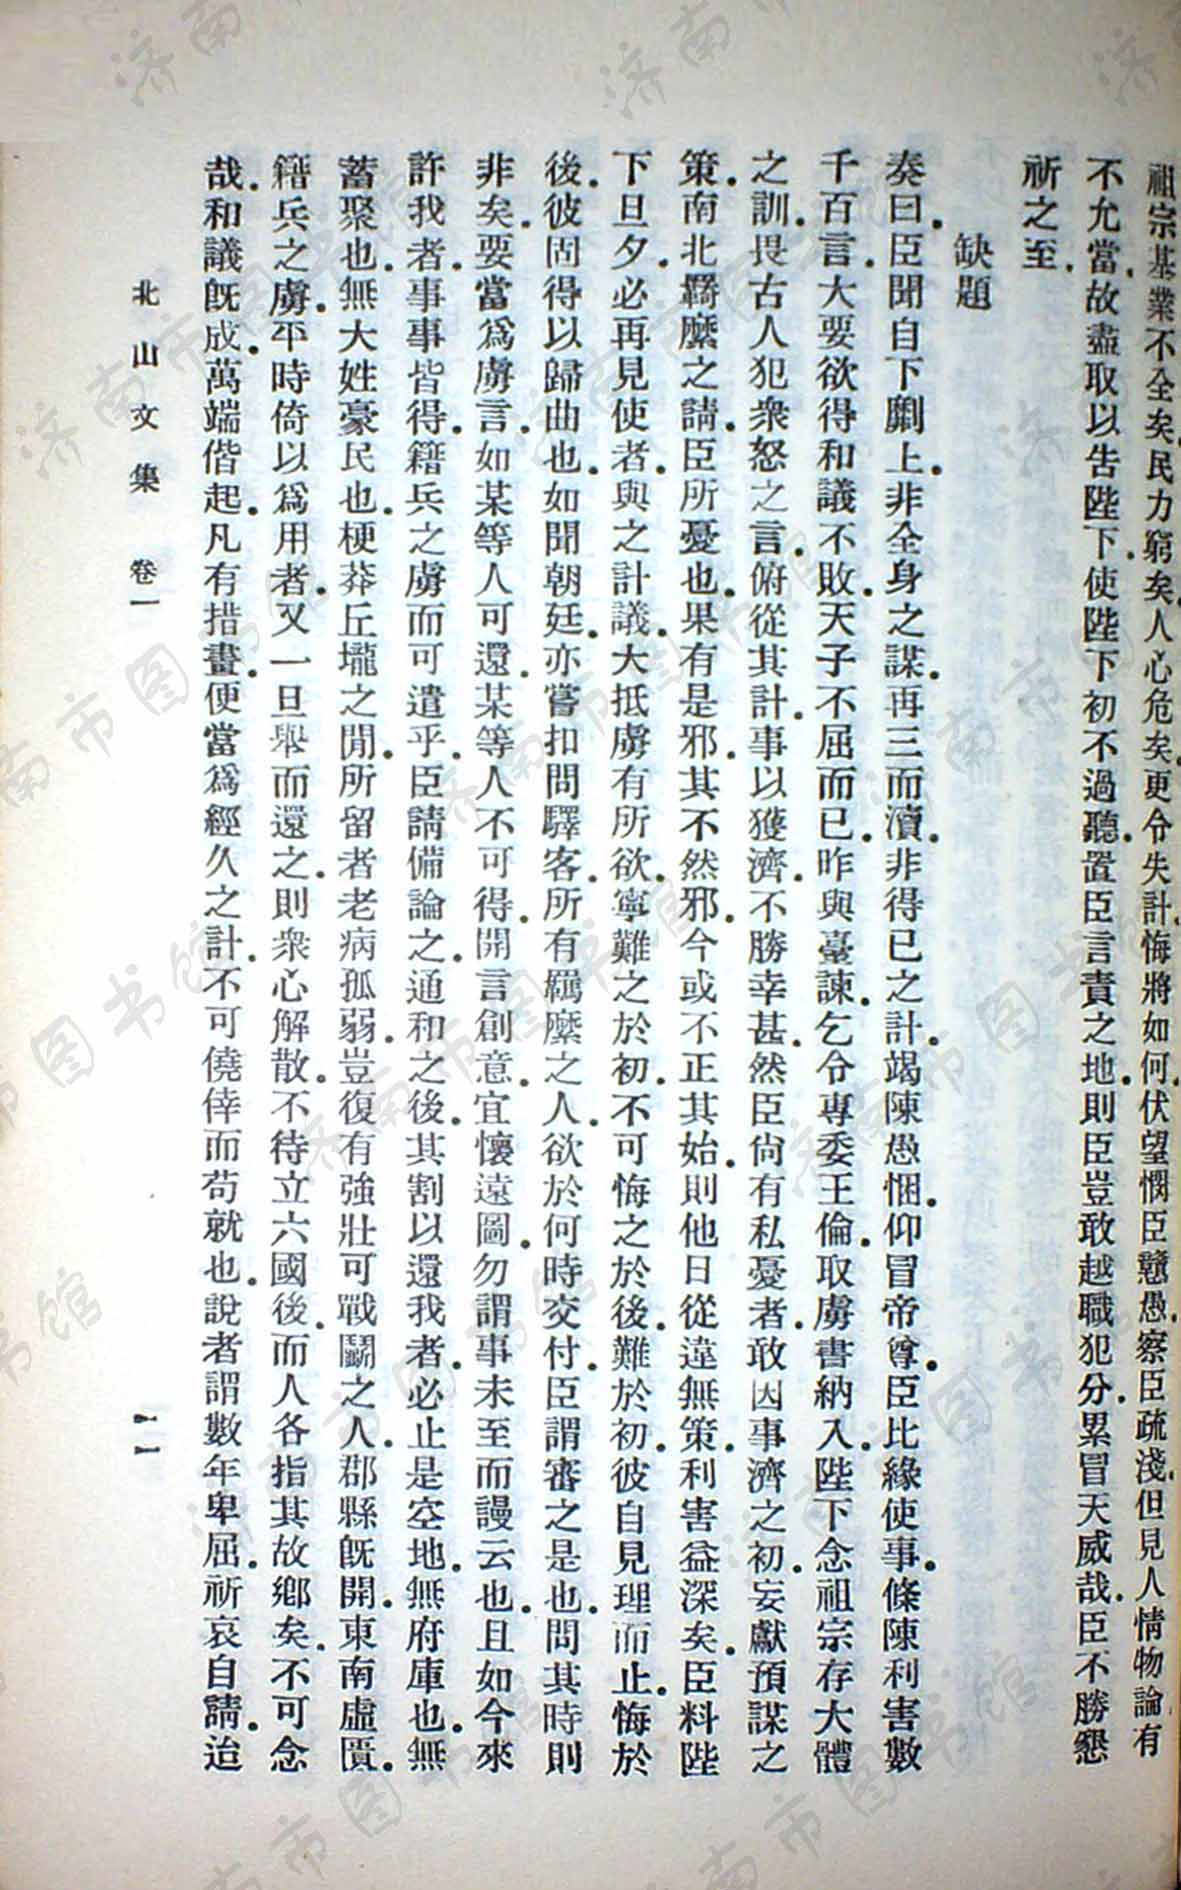 祖宗基業不全矣民力窮矣人心危矣更令失計悔將如何伏望憫臣戇愚察臣疏淺但見人情物論有
不允當故盡取以告陛下使陛下初不過聽置臣言責之地則臣豈敢越職犯分累冒天威哉臣不勝懇
祈之至
缺題
奏曰臣聞自下劘上非全身之謀再三而瀆非得已之計竭陳愚悃仰冒帝尊臣比緣使事條陳利害數
千百言大要欲得和議不敗天子不屈而已昨與臺諫乞令專委王倫取虜書納入陛下念祖宗存大體
之訓畏古人犯衆怒之言俯從其計事以獲濟不勝幸甚然臣尙有私憂者敢因事濟之初妄獻預謀之
策南北羈縻之請臣所憂也果有是邪其不然邪今或不正其始則他日從違無策利害益深矣臣料陛
下旦夕必再見使者與之計議大抵虜有所欲寧難之於初不可悔之於後難於初彼自見理而止悔於
後彼固得以歸曲也如聞朝廷亦嘗扣問驛客所有羈縻之人欲於何時交付臣謂審之是也問其時則
非矣要當爲虜言如某等人可還某等人不可得開言創意宜懷遠圖勿謂事未至而謾云也且如今來
許我者事事皆得籍兵之虜而可遣乎臣請備論之通和之後其割以還我者必止是空地無府庫也無
蓄聚也無大姓豪民也梗莽丘壠之閒所留者老病孤弱豈復有強壯可戰鬭之人郡縣旣開東南虛匱
籍兵之虜平時倚以爲用者又一旦舉而還之則衆心解散不待立六國後而人各指其故鄉矣不可念
哉和議旣成萬端偕起凡有措畫便當爲經久之計不可僥倖而苟就也說者謂數年卑屈祈哀自請迨
北山文集 卷一
一一
济南市图书馆